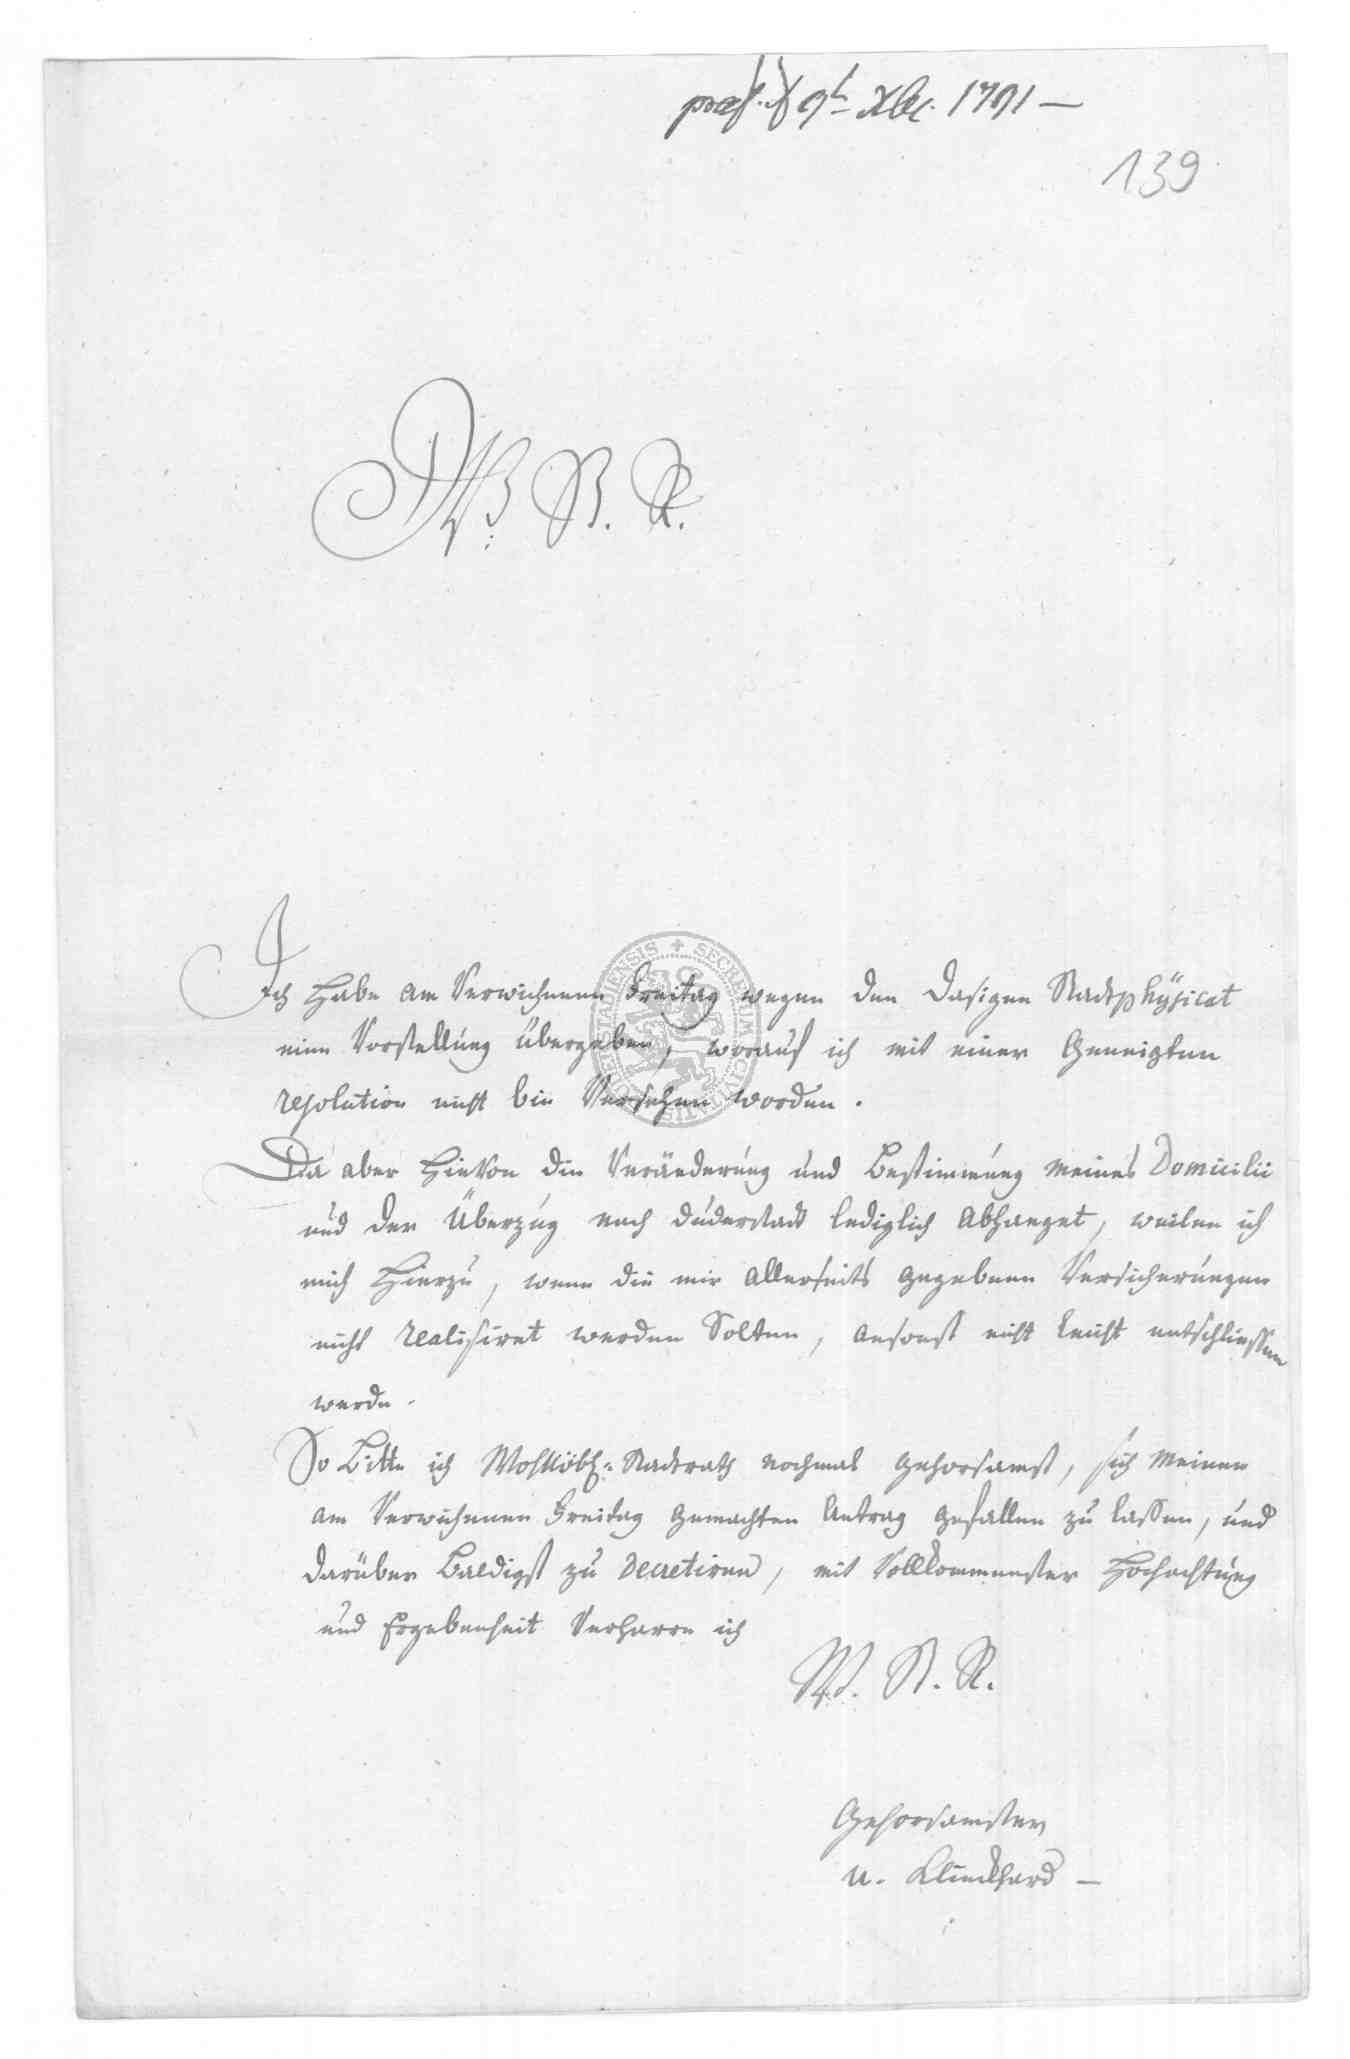 praes. d 9t Xbr. 1791 —
139
W. St. R.
Ich habe am Verwichenen Freitag wegen den dasigen Stadtphÿsicat
eine Vorstellung übergeben, worauf ich mit einer Geneigten
resolution nicht bin Versehen worden.
Da aber hievon die Veränderung und Bestimmung meines Domicilii
und der Überzug nach duderstadt lediglich abhanget, weilen ich
mich hierzu, wenn die mir allerseits gegebene Versicherungen
nicht realisiret werden Solten, ansonst nicht leicht entschliessen
werde.
So Bitte ich Wohllöbl: Stadtrath nochmal gehorsamst, sich meinen
am Verwichenen Freitag gemachten Antrag gefallen zu lassen, und
darüber Baldigst zu decretiren, mit Vollkommenster Hochachtung
und Ergebenheit Verharre ich
W. St. R.
Gehorsamster
Klinckhard —
SECRETUM